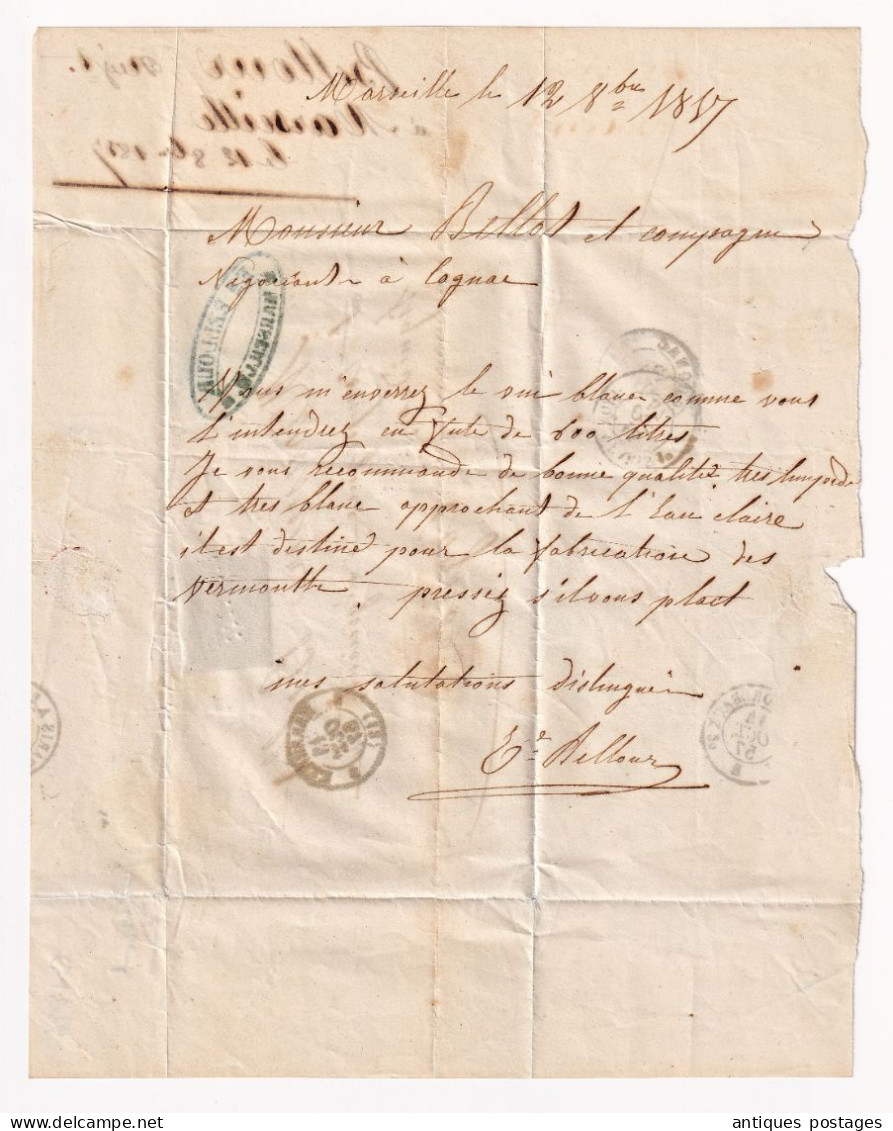 Marseille le 12 8bre 1857
Monsieur Bellot et compagnie
Négociants à Cognac
Vous m'enverrez le vin blanc comme vous
l'intendrez en fute de 600 litres
Je vous recommande de bonne qualité tres limpide
et tres blanc approchant de l'Eau claire
il est destiné pour la fabrication des
Vermouths pressez s'il vous plaet
mes salutations distingués
antiques postages